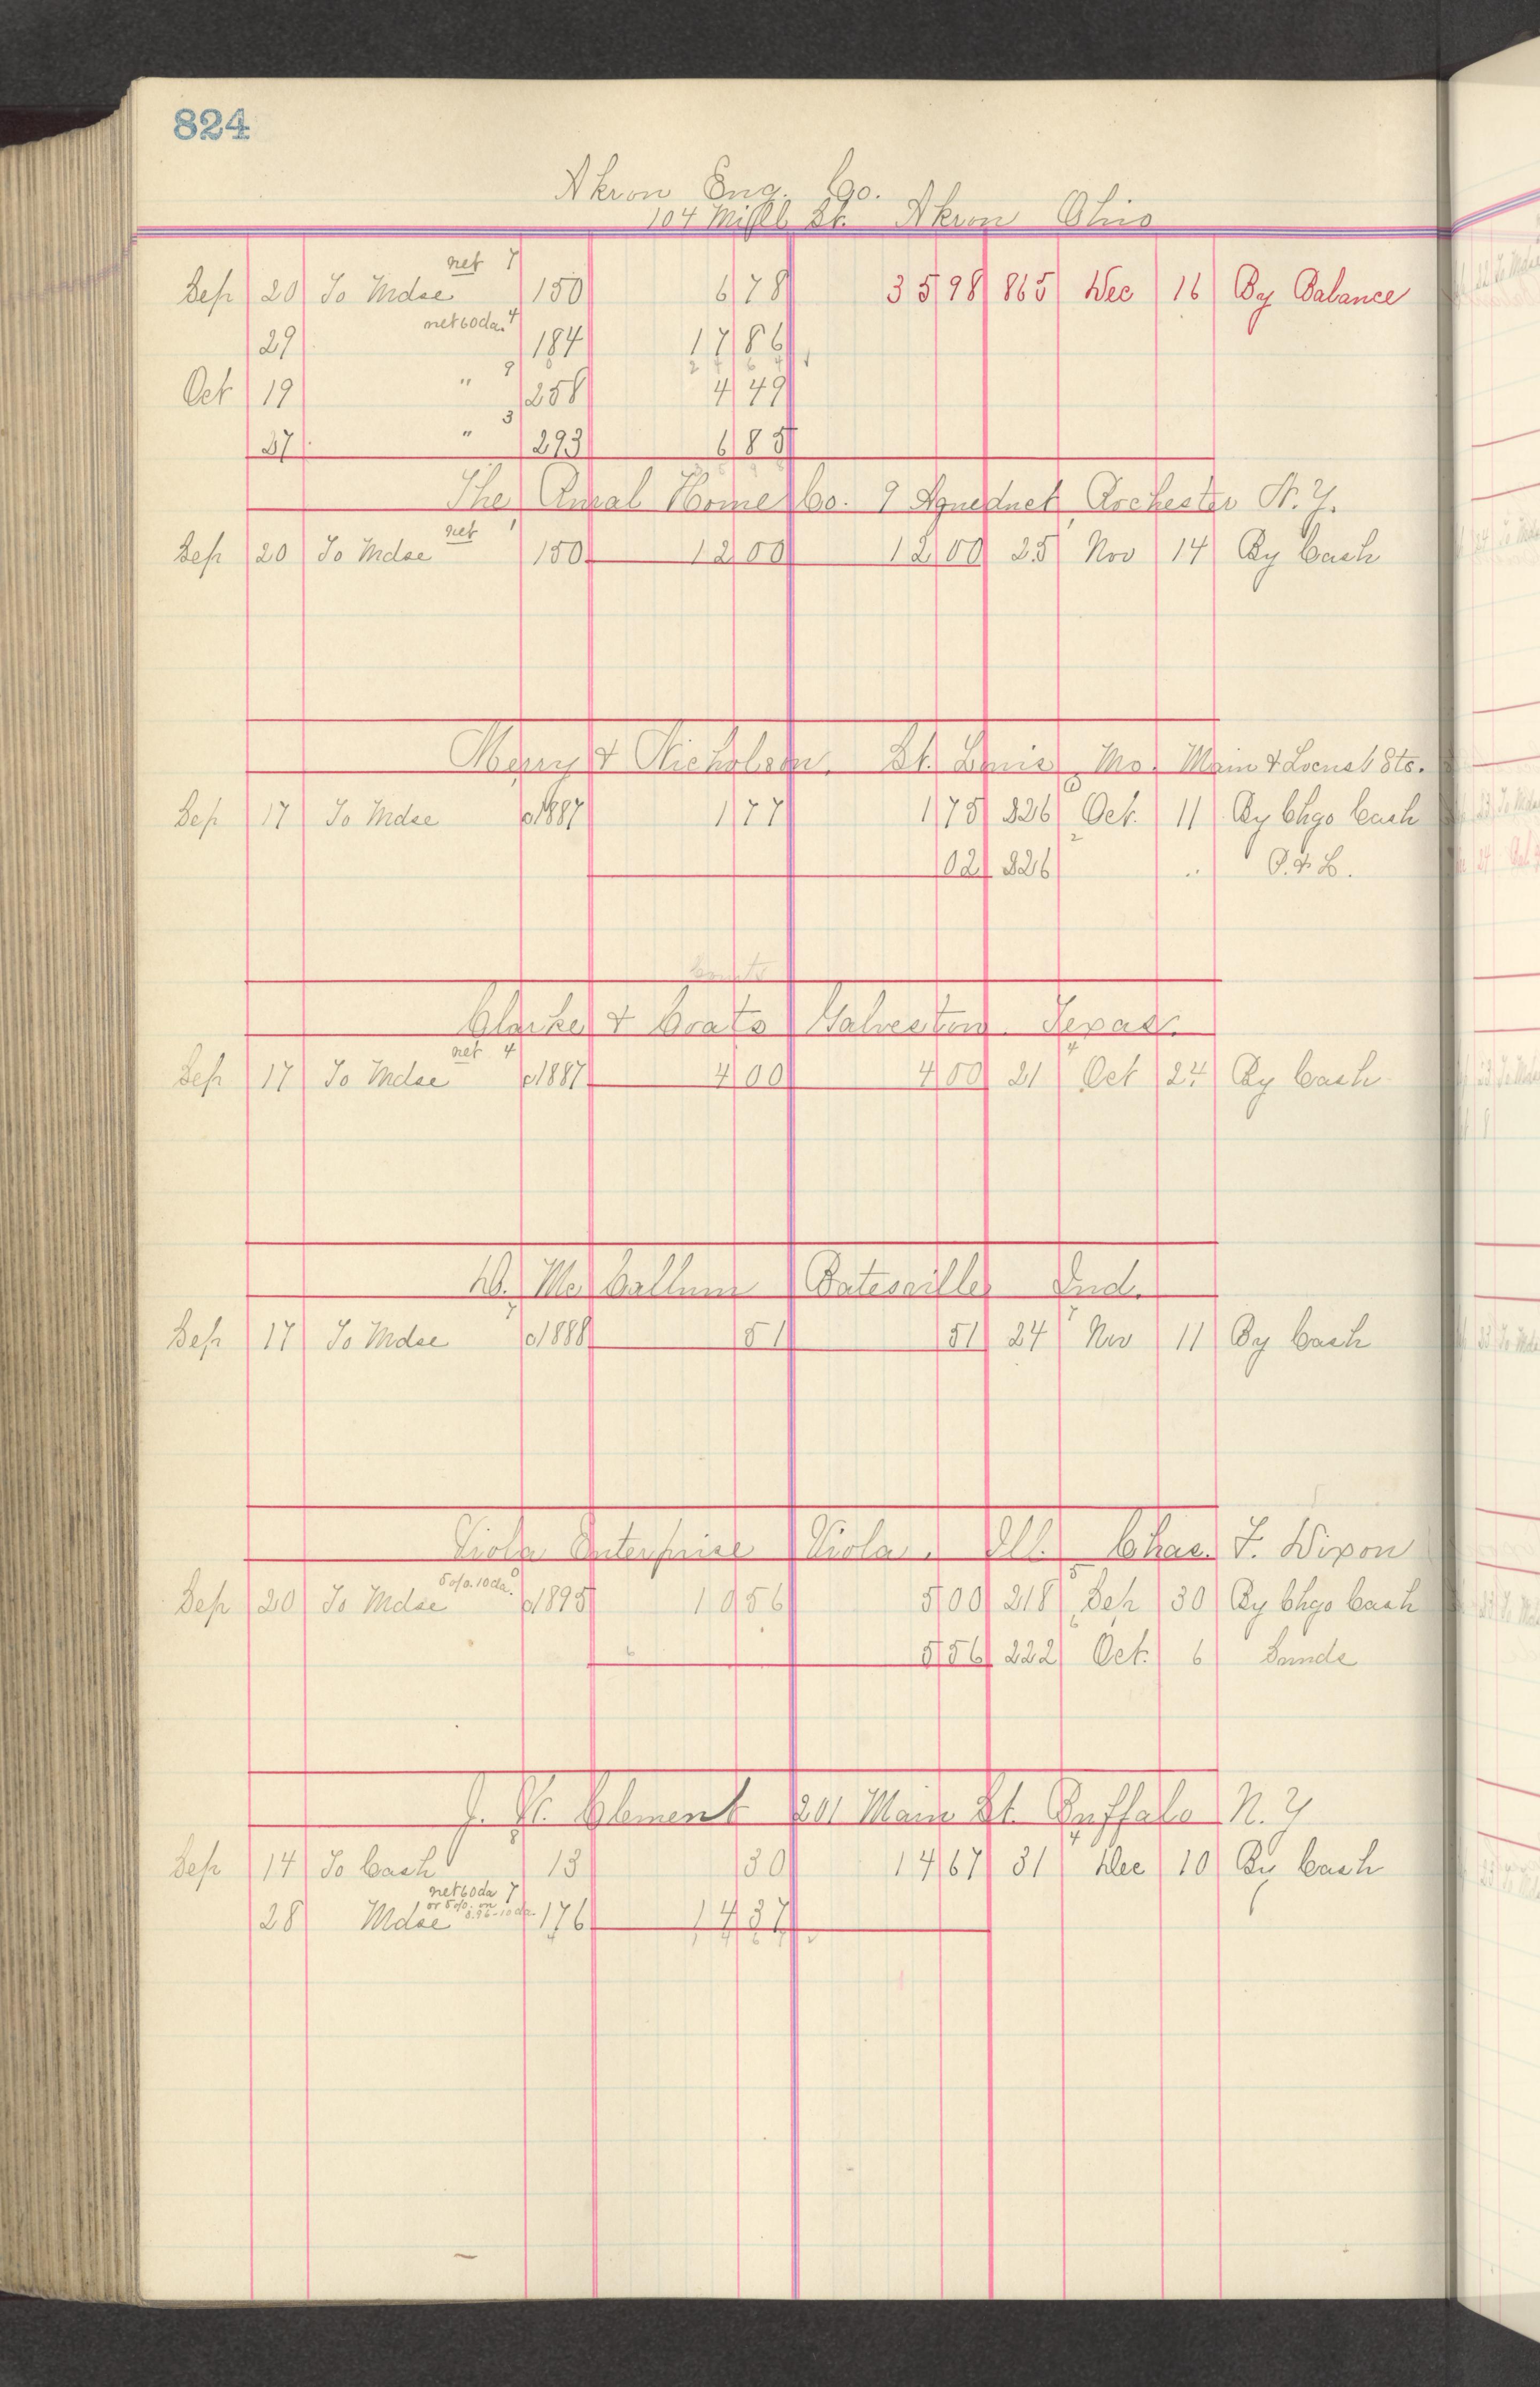 824
Akron Eng. Co.
104 Mill St. Akron Ohio
Sep 20 To Mdse net 7 150 6 78 35 98 865 Dec 16 By Balance
29 net 60 da. 4 184 17 86
Oct 19 " 9 258 4 49
27 " 3 293 6 85
The Rural Home Co. 9 Aqueduct Rochester N.Y.
Sep 20 To Mdse net 1 150 12 00 12 00 25 Nov 14 By Cash
Merry & Nicholson. St. Louis Mo. Main & Locust Sts.
Sep 17 To Mdse o1887 1 77 1 75 226 Oct. 11 By Chgo Cash
02 226 " P. & L.
Coutts
Clarke & Coats Galveston Texas.
Sep 17 To Mdse net 4 o1887 4 00 4 00 21 Oct 24 By Cash
W. Mc Callum Batesville Ind.
Sep 17 To Mdse 7 o1888 51 51 24 Nov 11 By Cash
Viola Enterprise Viola. Ill. Chas. F. Dixon
Sep 20 To Mdse 5 o/o. 10 da. o1895 10 56 5 00 218 Sep 30 By Chgo Cash
5 56 222 Oct. 6 Sunds
J. N. Clement 201 Main St. Buffalo N.Y
Sep 14 To Cash 13 30 14 67 31 Dec 10 By Cash
net 60 da 7
or 5 o/o. on
28 Mdse 8.96 - 10 da. 176 14 37